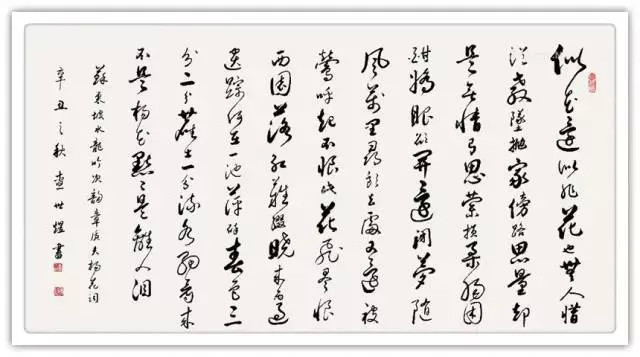 似花還似非花也無人惜
從教墜拋家傍路思量却
是無情有思縈損柔腸困
酣嬌眼欲開還閉夢隨
風萬里尋郎去處又還被
鶯呼起不恨此花飛盡恨
西園落紅難綴曉來雨過
遺踪何在一池萍碎春色三
分二分塵土一分流水細看來
不是楊花點〻是離人泪
蘇東坡水龍吟次韻章质夫楊花詞
辛丑之秋查世煜書